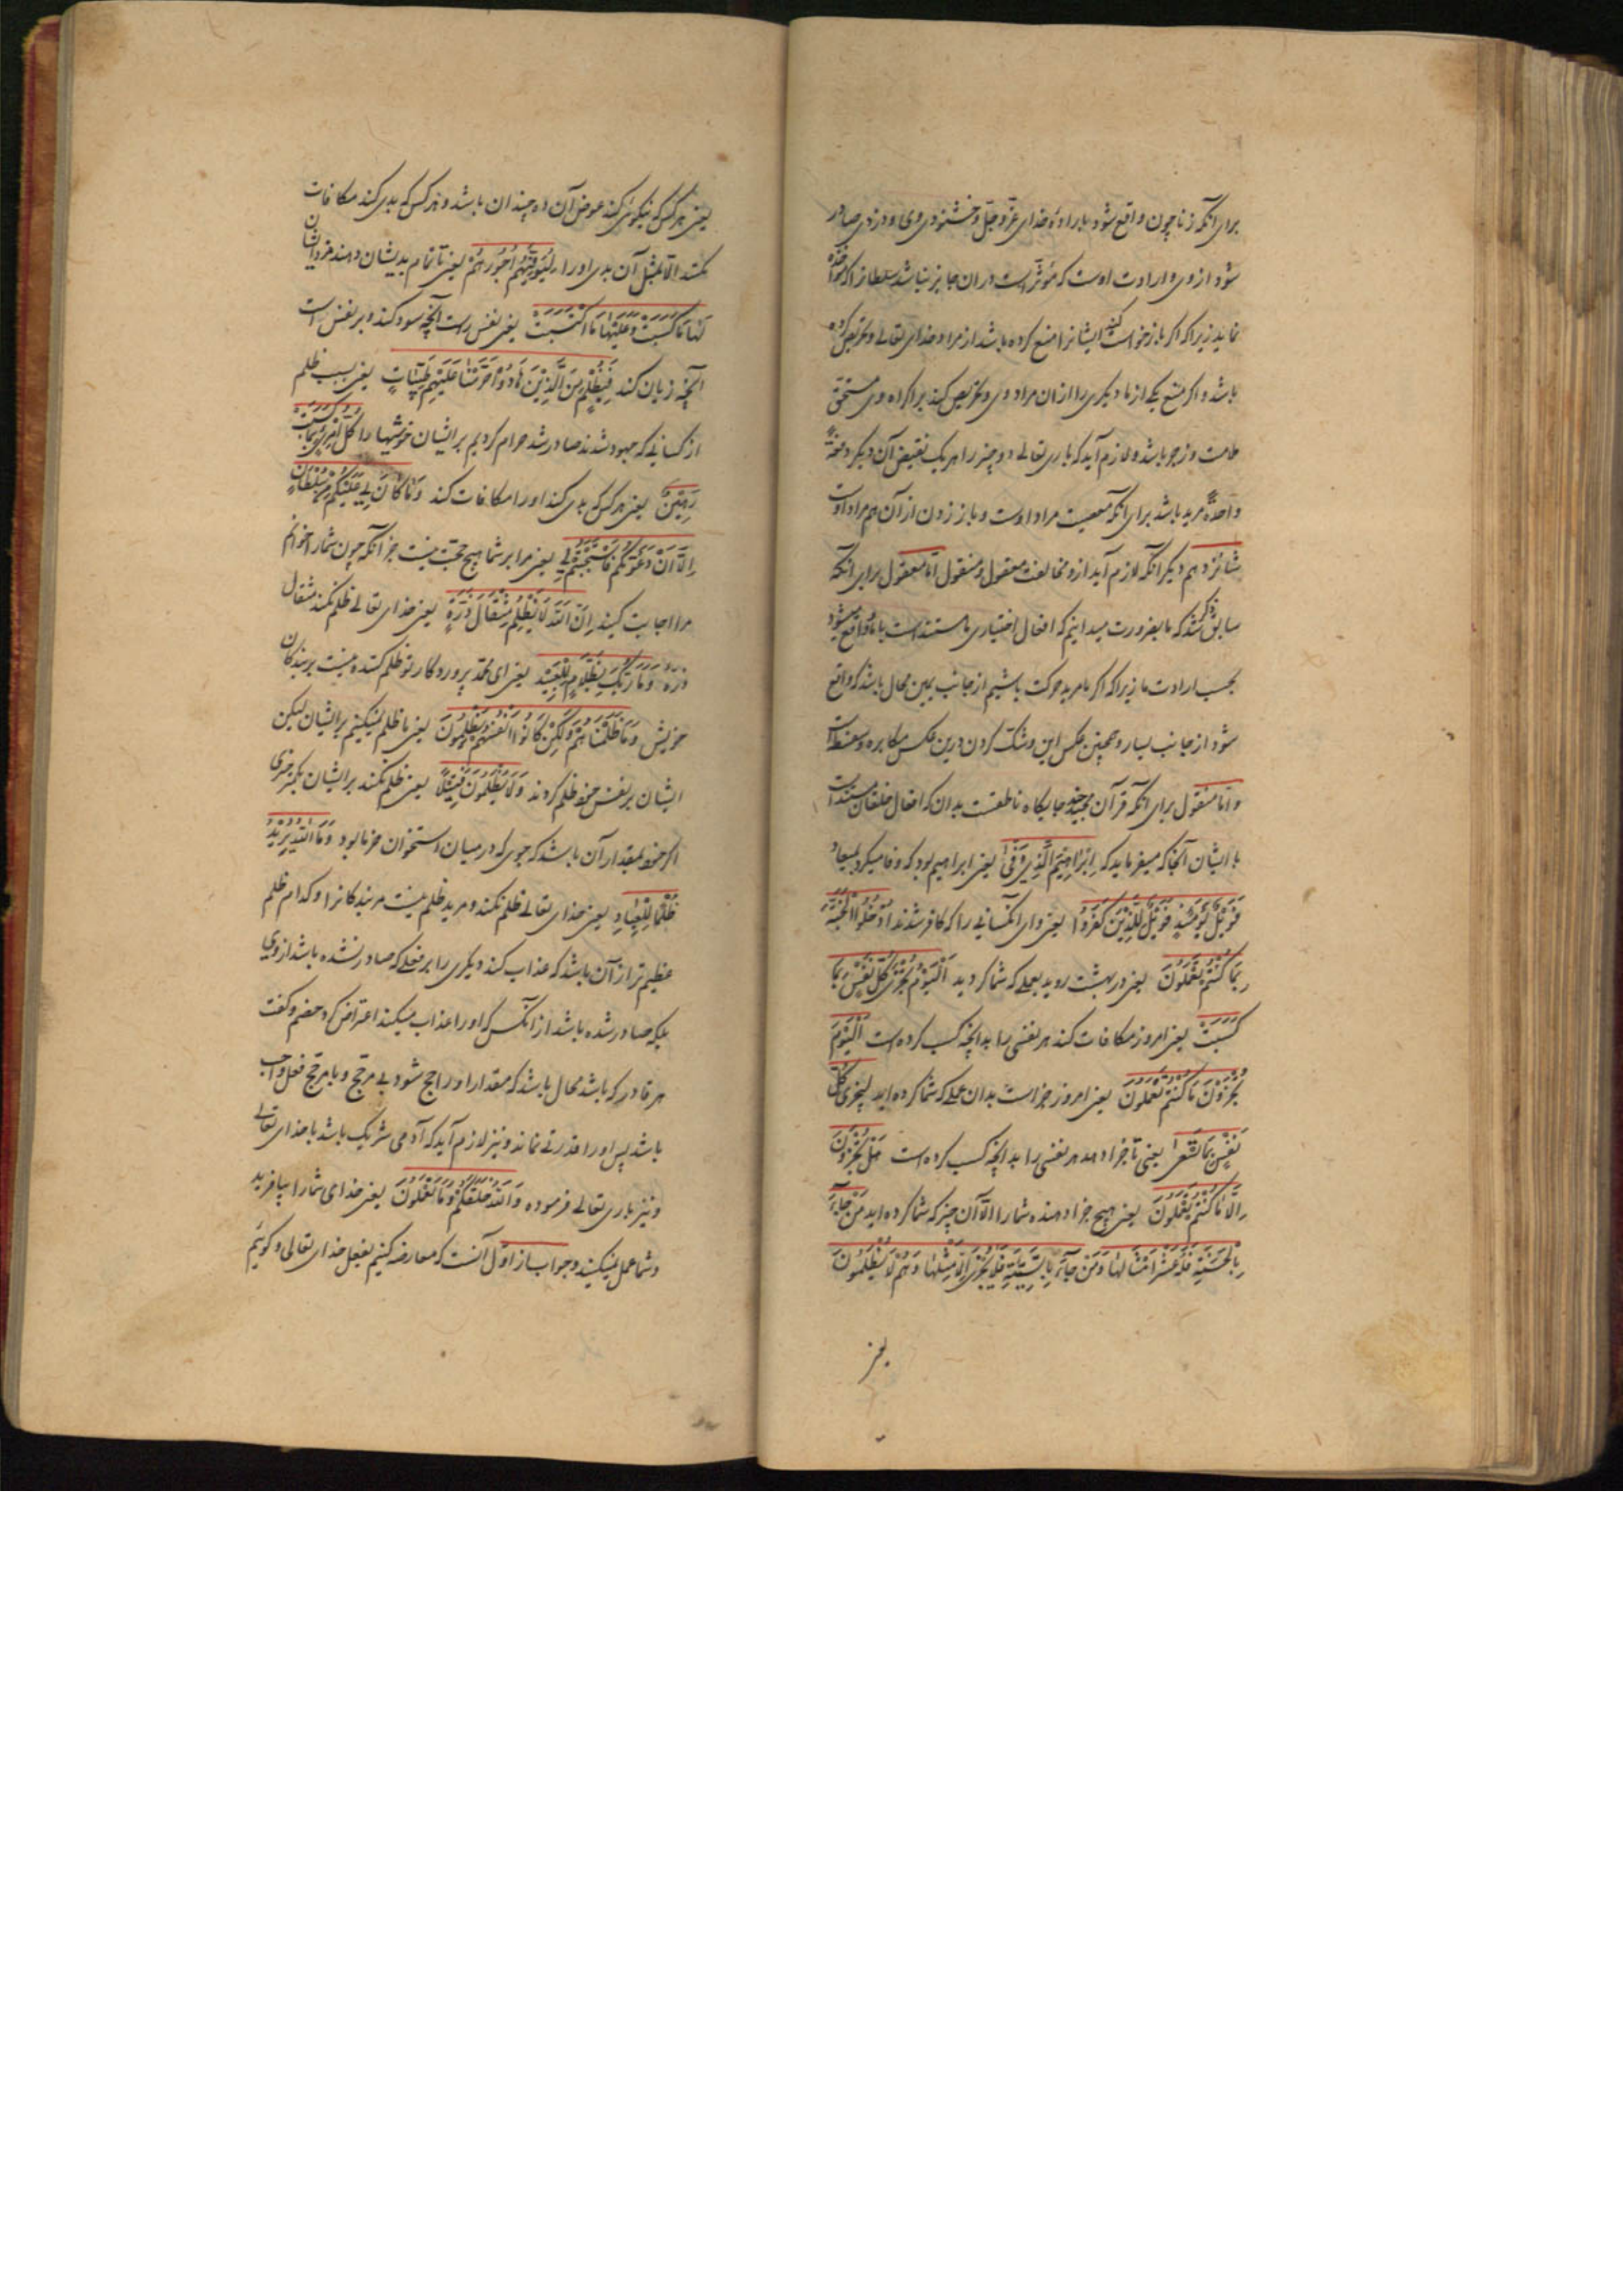 برای آنکه زنا چون واقع شود باراده خدای عزّ و جلّ و خشنودی وی و دزدی صادر
شود از وی و ارادت اوست که مؤثر است دران جایز نباشد سلطانرا که مواخذه
نماید زیرا که اگر بازخواست کند ایشانرا منع کرده باشد از مراد خدای تعالی و تحریص کرده
باشد و اگر منع یکی از ما دیگری را از ان مراد وی و تحریص کند بر اکراه وی مستحق
ملامت و زجر باشد و لازم آید که باری تعالی دو چیز را هر یک نقیض آن دیگر دفعةً
واحدةً مرید باشد برای آنکه معصیت مراد اوست و باز زدن از آن هم مراد اوست
شانزدهم دیگر آنکه لازم آید ازو مخالفت معقول و منقول امّا معقول برای آنکه
سابق ذکر شد که ما بضرورت میدانیم که افعال اختیاری ما مستند است بما و واقع میشود
بحسب ارادت ما زیرا که اگر ما مرید حرکت باشیم از جانب یمین محال باشد که واقع
شود از جانب یسار و همچنین عکس این و شک کردن درین عکس مکابره و سفسطه است
و امّا منقول برای آنکه قرآن مجید چند جایگاه ناطقست بدان که افعال خلقان مستند است
با ایشان آنجا که میفرماید که اِبْرٰاهِیْمَ الَّذِیْ وَفّٰی یعنی ابراهیم بود که وفا میکرد بمیعاد
فَوَیْلٌ یَوْمَئِذٍ فَوَیْلٌ لِلَّذِیْنَ کَفَرُوْا یعنی وای آنکسانی را که کافر شدند اُدْخُلُوا الْجَنَّةَ
بِمَا کُنْتُمْ تَعْمَلُوْنَ یعنی در بهشت روید بعملی که شما کردید اَلْیَوْمَ تُجْزٰی کُلُّ نَفْسٍ بِمَا
کَسَبَتْ یعنی امروز مکافات کند هر نفسی را بدانچه کسب کرده است اَلْیَوْمَ
تُجْزَوْنَ مَا کُنْتُمْ تَعْمَلُوْنَ یعنی امروز جزاست بدان عملی که شما کرده اید لِتُجْزٰی کُلُّ
نَفْسٍ بِمَا تَسْعٰی یعنی تا جزا دهد هر نفسی را بدانچه کسب کرده است هَلْ تُجْزَوْنَ
اِلَّا مَا کُنْتُمْ تَعْمَلُوْنَ یعنی هیچ جزا دهنده شما را الّا آن چیز که شما کرده اید مَنْ جَآءَ
بِالْحَسَنَةِ فَلَهُ عَشْرُ اَمْثَالِهَا وَمَنْ جَآءَ بِالسَّیِّئَةِ فَلَا یُجْزٰی اِلَّا مِثْلَهَا وَهُمْ لَا یُظْلَمُوْنَ
یعنی هر کس که نیکوئی کند عوض آن ده چندان باشد و هر کس که بدی کند مکافات
نکنند الّا بمثل آن بدی او را لِیُوَفِّیَهُمْ اُجُوْرَهُمْ یعنی تا تمام بدیشان دهند مزد ایشان
لَهَا مَا کَسَبَتْ وَعَلَیْهَا مَا اکْتَسَبَتْ یعنی نفس راست آنچه سود کند و بر نفس است
آنچه زیان کند فَبِظُلْمٍ مِنَ الَّذِیْنَ هَادُوْا حَرَّمْنَا عَلَیْهِمْ طَیِّبَاتٍ یعنی بسبب ظلم
از کسانی که جهود شدند صادر شد حرام کردیم بر ایشان خوشیها را کُلُّ امْرِئٍ بِمَا کَسَبَتْ
رَهِیْنٌ یعنی هر کس که بدی کند او را مکافات کند وَمَا کَانَ لِیَ عَلَیْکُمْ مِنْ سُلْطَانٍ
اِلَّا اَنْ دَعَوْتُکُمْ فَاسْتَجَبْتُمْ لِیْ یعنی مرا بر شما هیچ حجت نیست جز آنکه چون شما را خوانم
مرا اجابت کنید اِنَّ اللّٰهَ لَا یَظْلِمُ مِثْقَالَ ذَرَّةٍ یعنی خدای تعالی ظلم نکند مثقال
ذرّه وَمَا رَبُّکَ بِظَلَّامٍ لِلْعَبِیْدِ یعنی ای محمّد پروردگار تو ظلم کننده نیست بر بندگان
خویش وَمَا ظَلَمْنَاهُمْ وَلٰکِنْ کَانُوْا اَنْفُسَهُمْ یَظْلِمُوْنَ یعنی ما ظلم نمیکنیم بر ایشان لیکن
ایشان بر نفس خود ظلم کردند وَلَا یُظْلَمُوْنَ فَتِیْلًا یعنی ظلم نکند بر ایشان بچیزی
اگر خود بمقدار آن باشد که جوی که در میان استخوان خرما بود وَمَا اللّٰهُ یُرِیْدُ
ظُلْمًا لِلْعِبَادِ یعنی خدای تعالی ظلم نکند و مرید ظلم نیست مر بندگانرا و کدام ظلم
عظیم تر از آن باشد که عذاب کند دیگری را بر فعلی که صادر نشده باشد از وی
بلکه صادر شده باشد از آنکس که او را عذاب میکند اعتراض کرد خصم و گفت
هر قادر که باشد محال باشد که مقدار او راجح شود بی مرجّح و با مرجّح فعل واجب
باشد پس او را قدرتی نماند و نیز لازم آید که آدمی شریک باشد با خدای تعالی
و نیز باری تعالی فرموده وَاللّٰهُ خَلَقَکُمْ وَمَا تَعْمَلُوْنَ یعنی خدای شما را بیافرید
و شما عمل نمیکنید و جواب از اوّل آنست که معارضه کنیم بفعل خدای تعالی و گوئیم